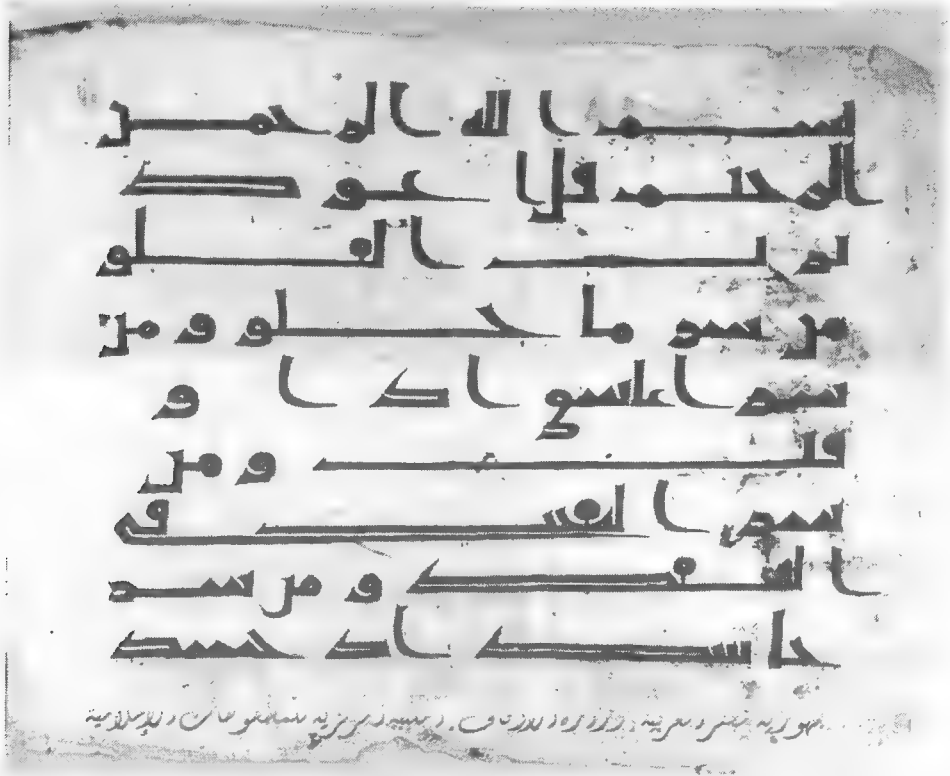 بسم الله الرحمن
الرحيم قل اعوذ
برب الفلق
من شر ما خلق و من
شر غاسق اذا و
قب و من
شر النفثت في
العقد و من شر
حاسد اذا حسد
جمهورية مصر العربية . وزارة الاوقاف . المكتبة المركزية للمخطوطات الإسلامية